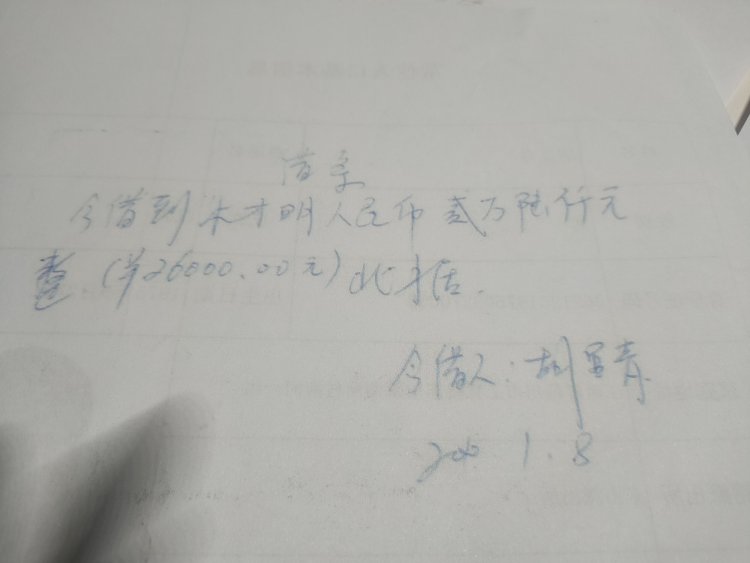 借条
今借到朱才明人民币贰万陆仟元
整(¥26000.00元)此据.
今借人:胡 青
1.8